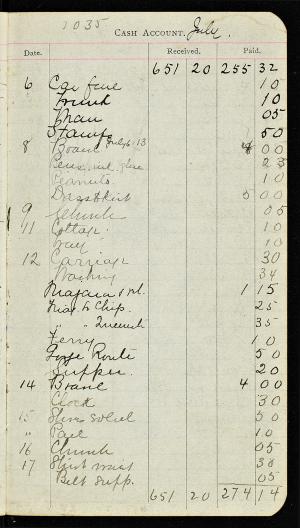 1035
CASH ACCOUNT. July.
Date. Received. Paid.
651 20 255 32
6 Car fare 10
10
Man 05
Stamps 50
8 Board July 6-13 4 00
Pens, ink, glue 23
Peanuts 10
5 00
9 05
11 Cottage 10
10
12 Carriage 30
Washing 34
Niagara 1 15
Niag. to Chip. 25
" " 35
Ferry 10
Gorge Route 50
Supper 20
14 Board 4 00
Clock 30
15 50
" Pail 10
16 Church 05
17 Shirt waist 30
Belt Supp. 05
651 20 274 14